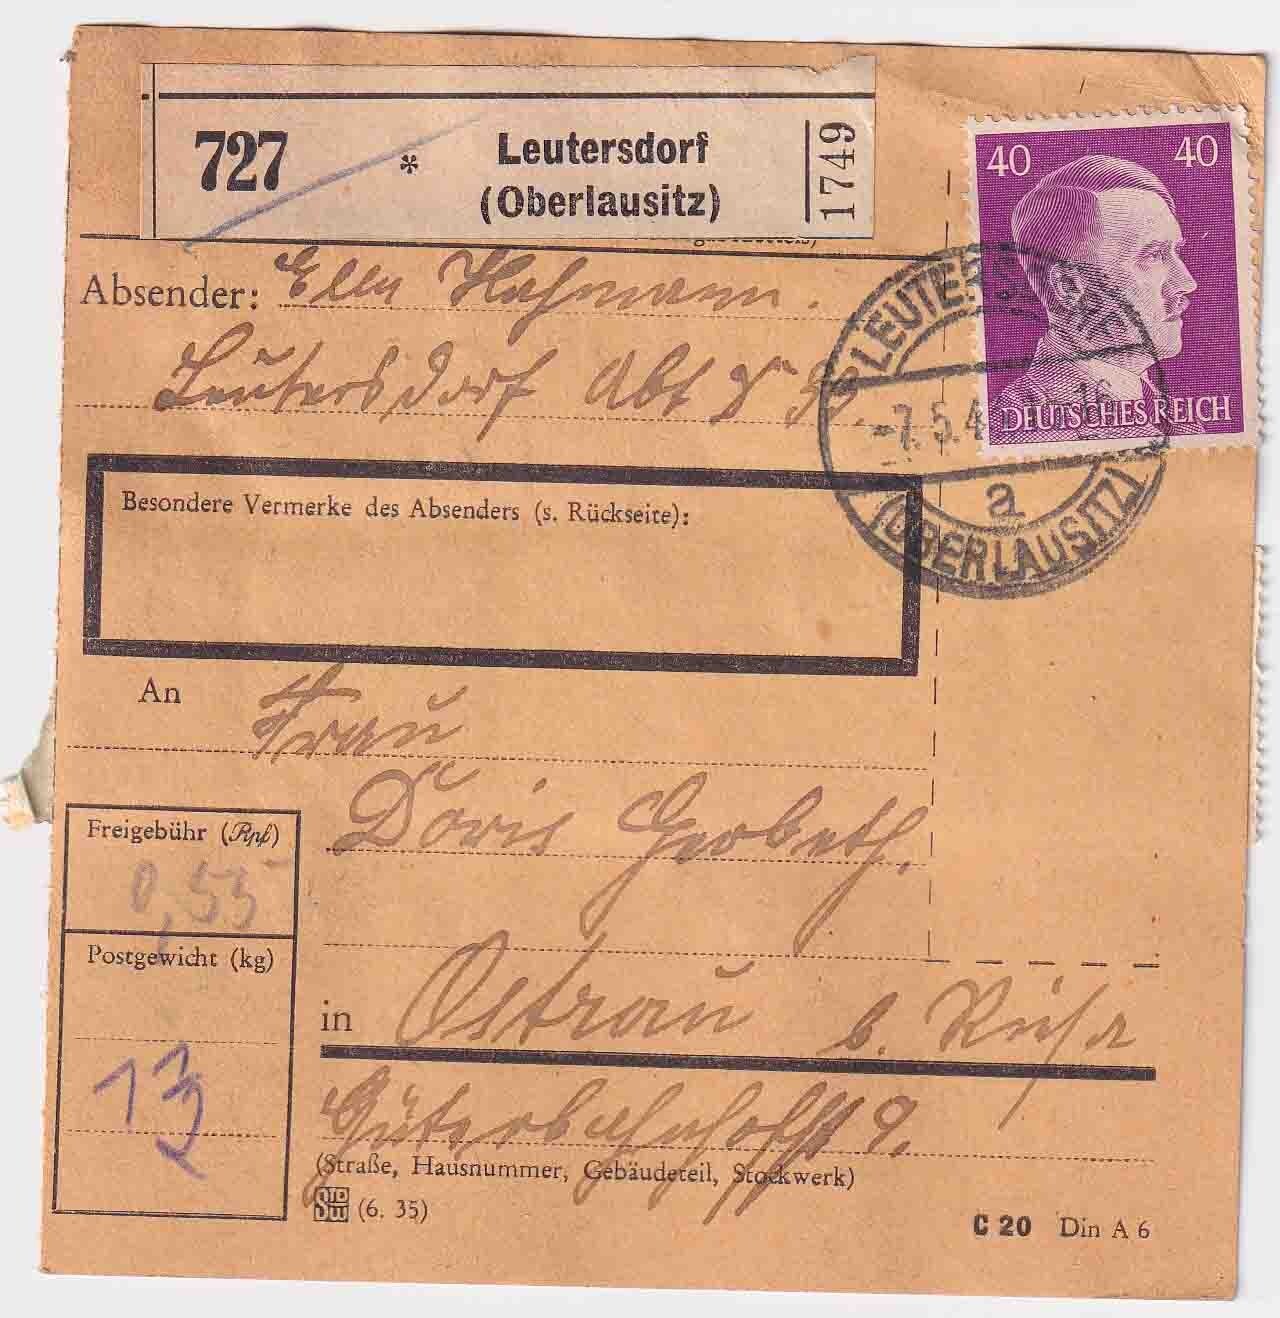 727 * Leutersdorf
(Oberlausitz)
1749
40 40
DEUTSCHES REICH
LEUTERSDORF
-7.5.4 16
a
(OBERLAUSITZ)
Absender: Ella Hahmann.
Leutersdorf Abt
Besondere Vermerke des Absenders (s. Rückseite):
An Frau
Doris Gerbeth.
Freigebühr (Rpf)
0,55
Postgewicht (kg)
13
in Ostrau b. Riesa
Güterbahnhofstr 9.
(Straße, Hausnummer, Gebäudeteil, Stockwerk)
(6. 35)
C 20 Din A 6